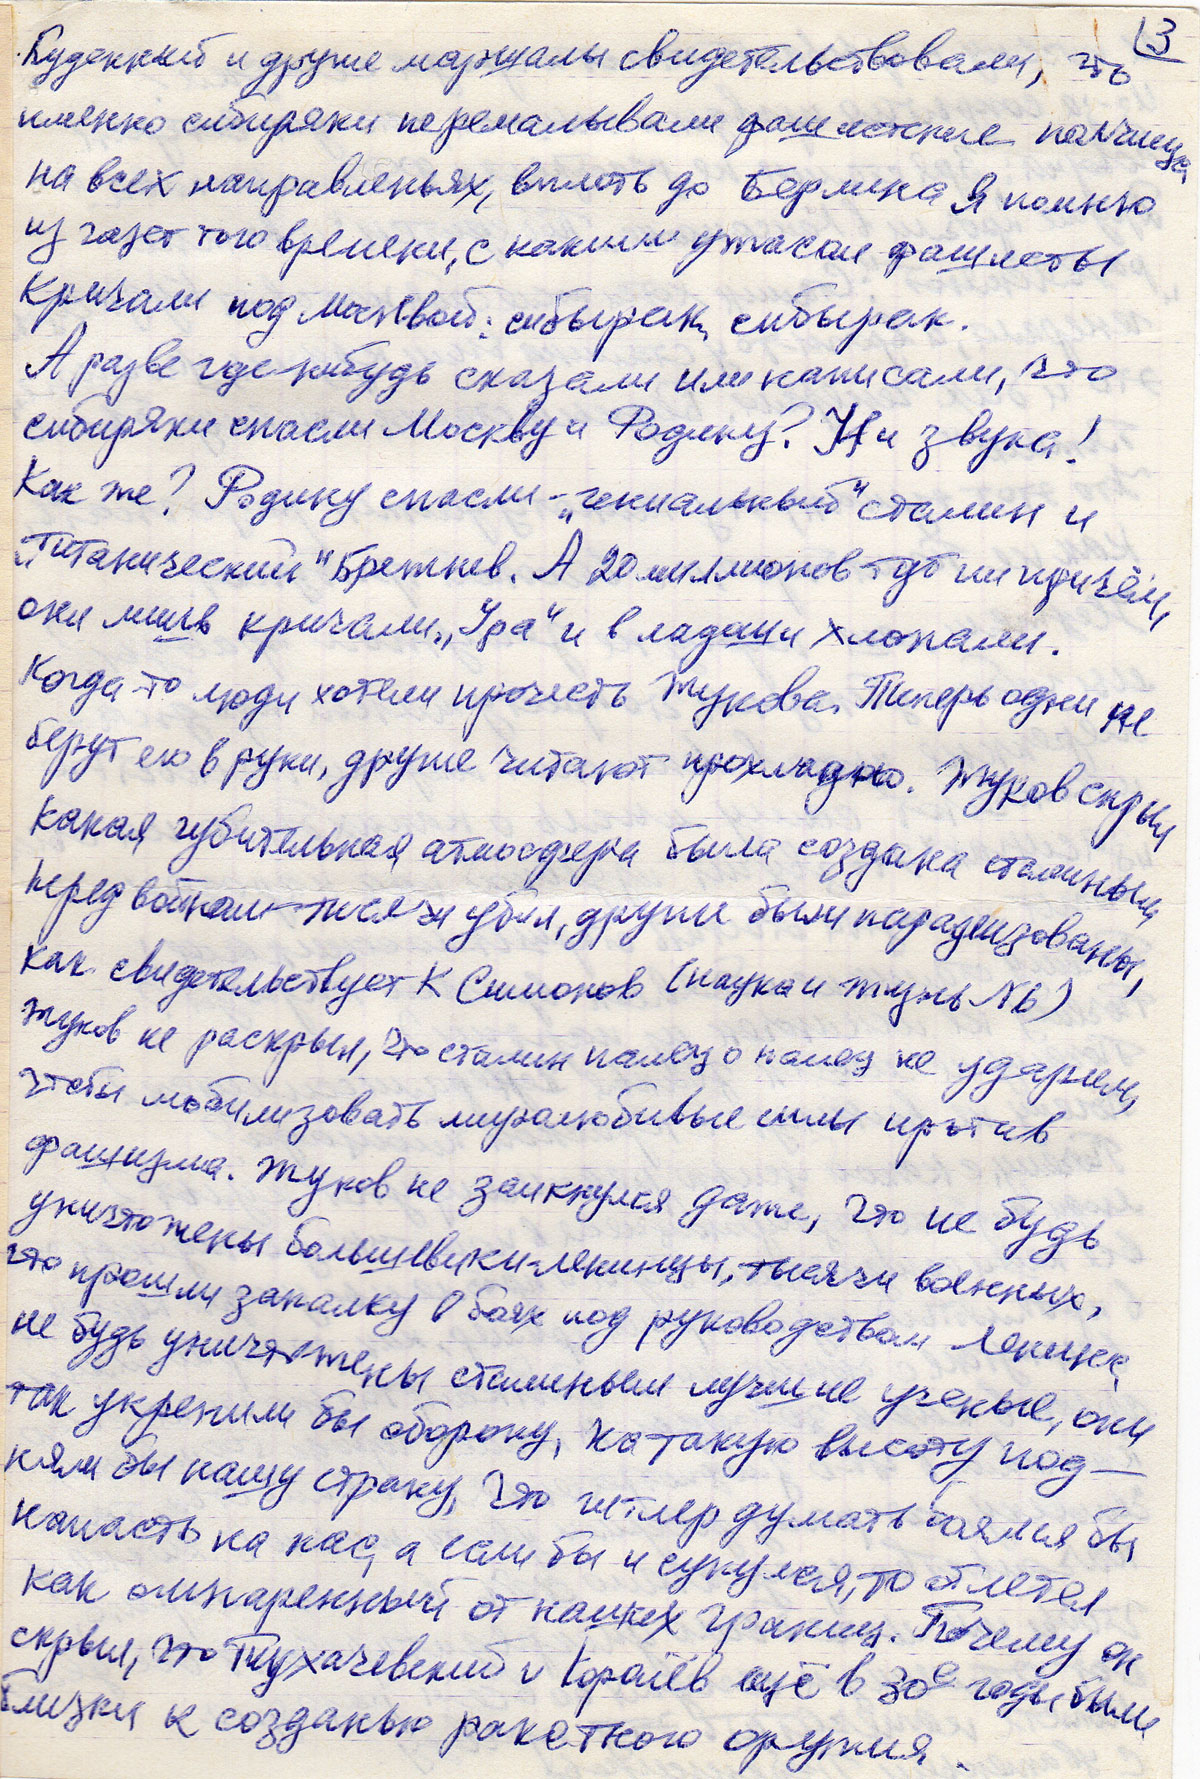 3
Буденный и другие маршалы свидетельствовали, что
именно сибиряки перемалывали фашистские полчища
на всех направленьях, вплоть до Берлина Я помню
из газет того времени, с каким ужасом фашисты
кричали под Москвой: сибырак, сибырак.
А разве где нибудь сказали или написали, что
сибиряки спасли Москву и Родину? Ни звука!
Как же? Родину спасли - „гениальный" сталин и
„титанический" Брежнев. А 20 миллионов - тут ни причём,
они лишь кричали „Ура" и в ладоши хлопали.
Когда-то люди хотели прочесть Жукова. Теперь одни не
берут его в руки, другие читают прохладно. Жуков скрыл
какая губительная атмосфера была создана сталиным
перед войной убил, другие были парализованы,
как свидетельствует К Симонов (наука и жизнь N6)
Жуков не раскрыл, что сталин палец о палец не ударил,
чтобы мобилизовать миролюбивые силы против
фашизма. Жуков не заикнулся даже, что не будь
уничтожены большевики-ленинцы, тысячи военных,
что прошли закалку в боях под руководством Ленина,
не будь уничтожены сталиным лучшие ученые, они
так укрепили бы оборону, на такую высоту под-
няли бы нашу страну, что гитлер думать боялся бы
напасть на нас, а если бы и сунулся, то отлетел
как ошпаренный от наших границ. Почему он
скрыл, что Тухачевский и Королёв ещё в 30е годы были
близки к созданью ракетного оружия.